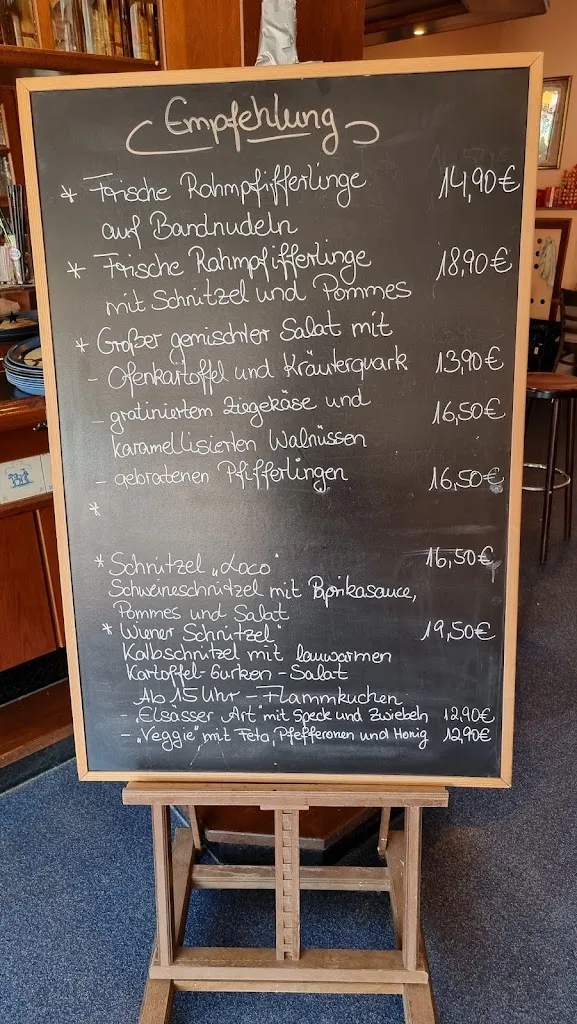 Empfehlung
* Frische Rahmpfifferlinge 14,90€
auf Bandnudeln
* Frische Rahmpfifferlinge 18,90€
mit Schnitzel und Pommes
* Großer gemischter Salat mit
- Ofenkartoffel und Kräuterquark 13,90€
- gratiniertem Ziegekäse und 16,50€
karamellisierten Walnüssen
- gebratenen Pfifferlingen 16,50€
*
* Schnitzel „Loco" 16,50€
Schweineschnitzel mit Paprikasauce,
Pommes und Salat
* Wiener Schnitzel" 19,50€
Kalbschnitzel mit lauwarmen
Kartoffel-Gurken-Salat
Ab 15 Uhr - Flammkuchen
- „Elsässer Art" mit Speck und Zwiebeln 12,90€
- „Veggie" mit Feta, Pfefferonen und Honig 12,90€